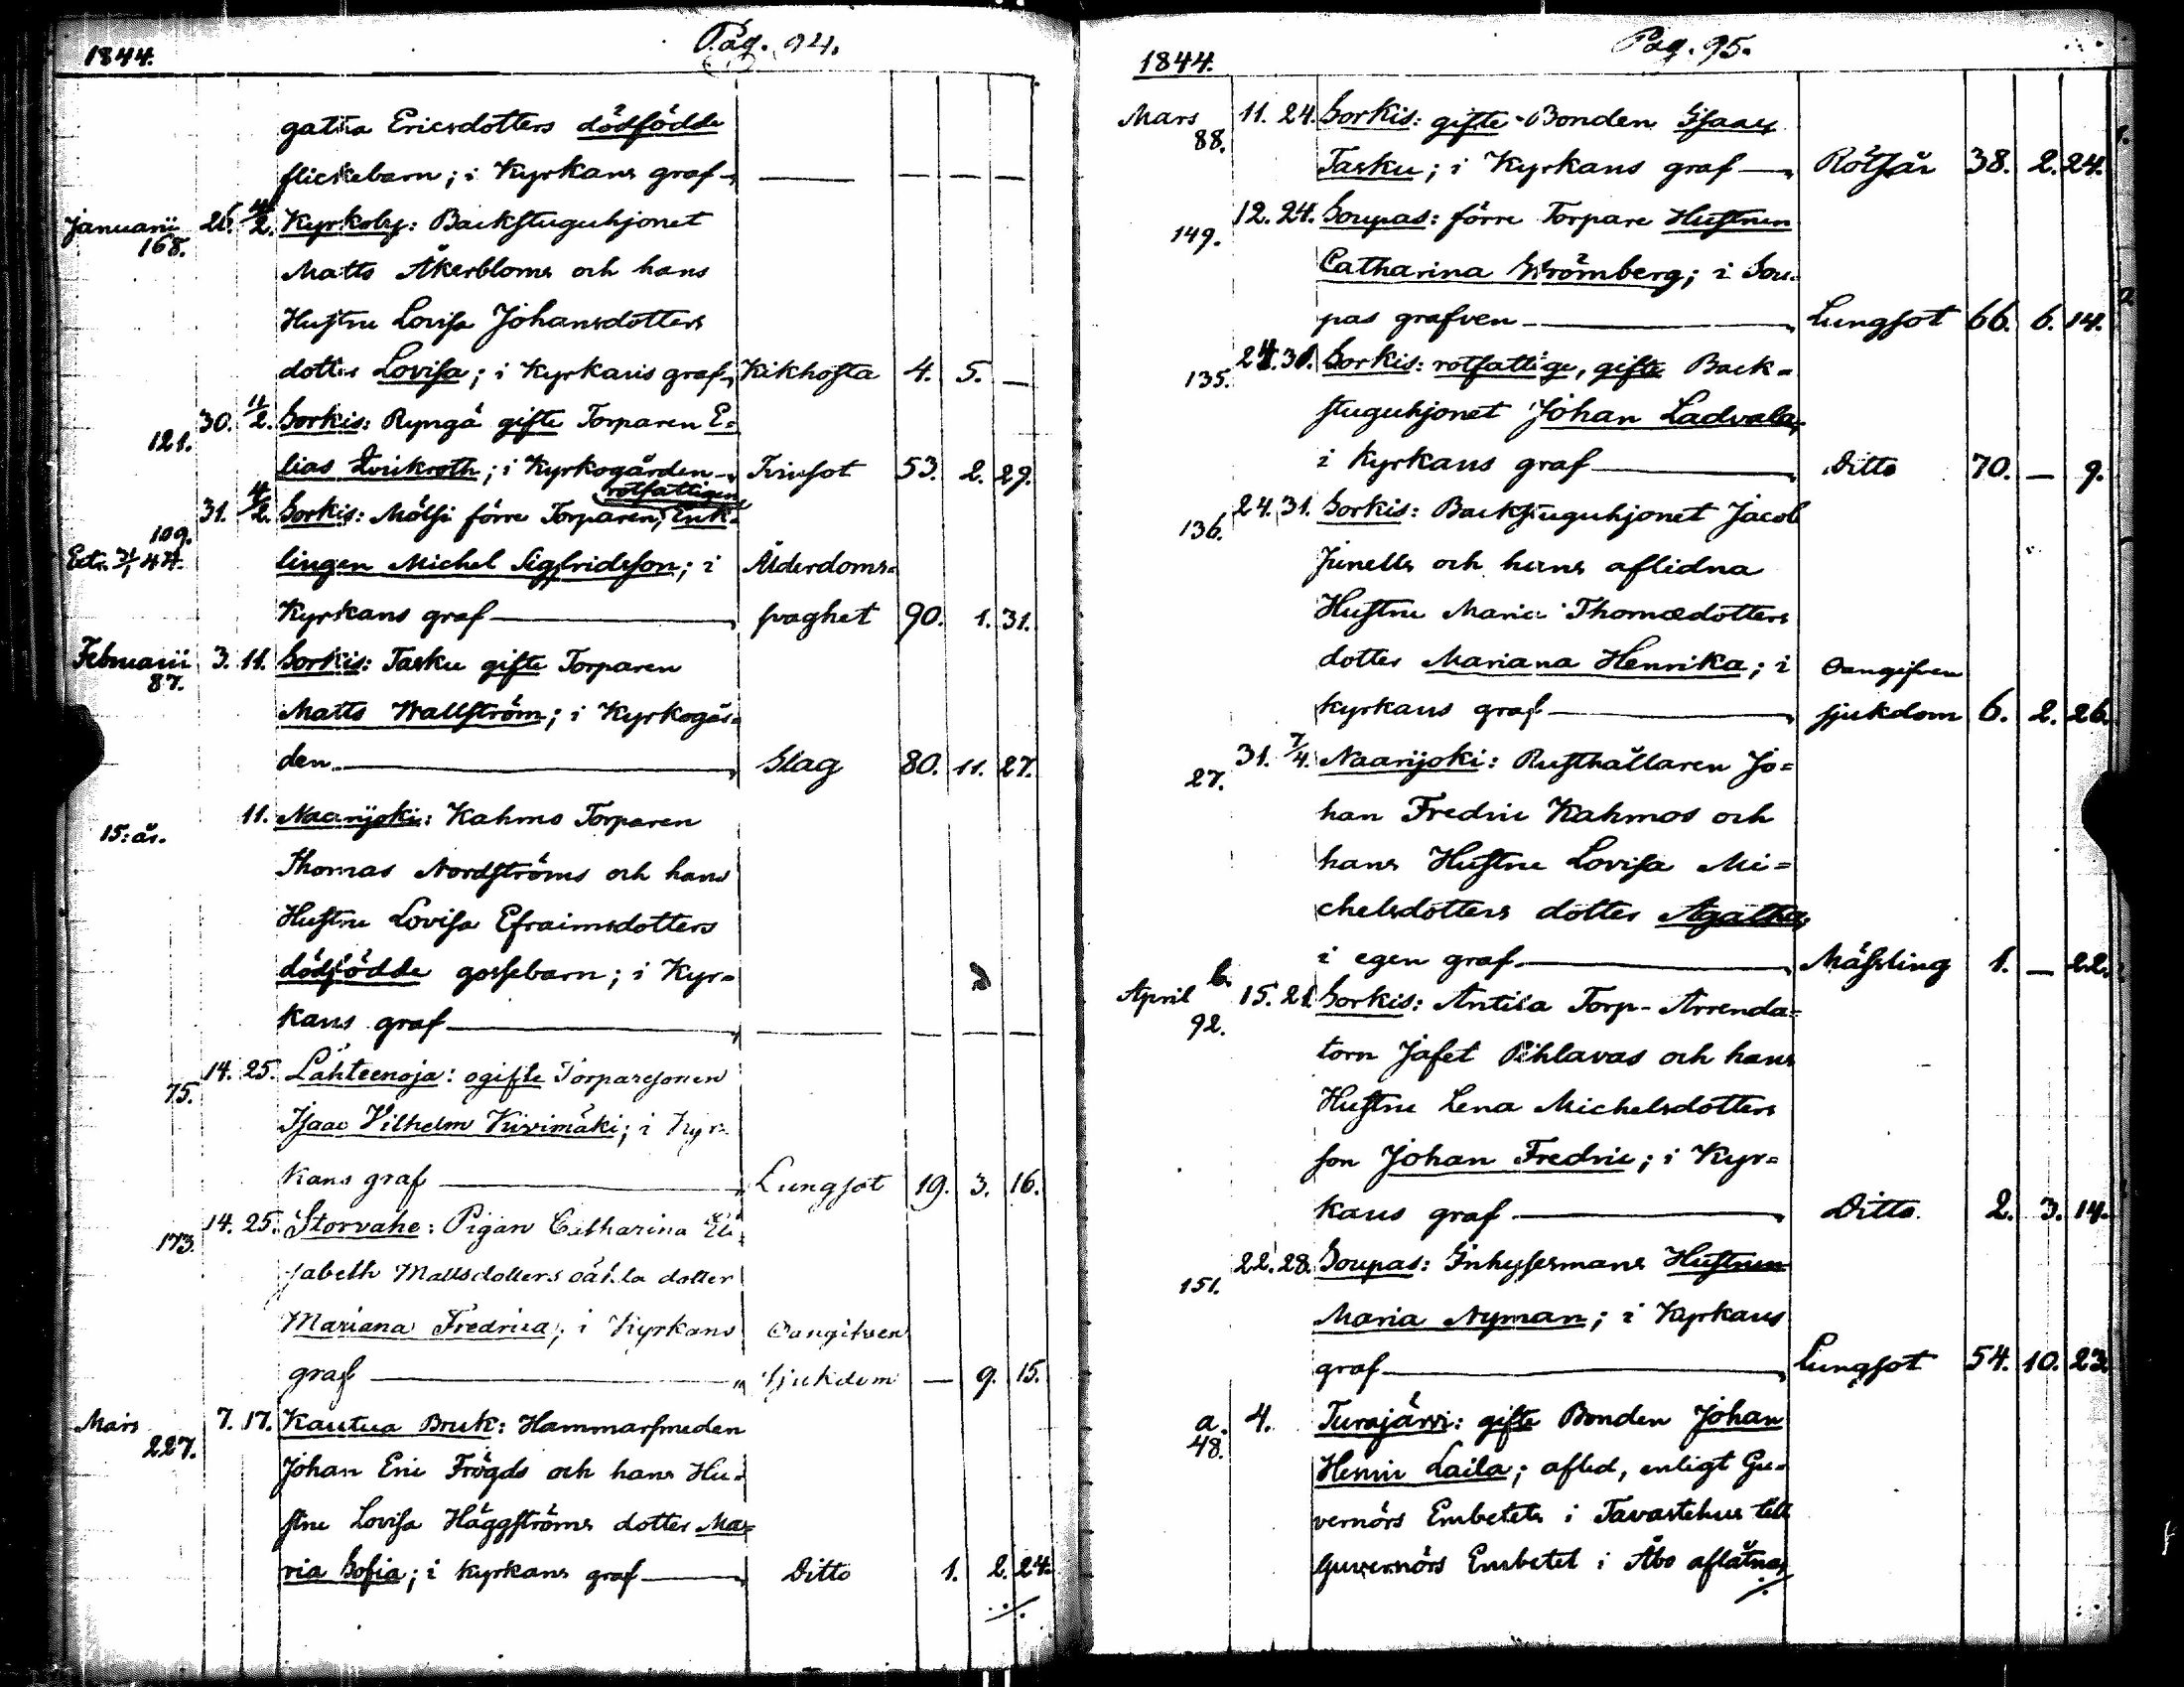 1844. Pag. 94.
gatha Ericsdotters dödfödde
flickebarn; i Kyrkans graf — — — —
Januarii 168. 26. 4/2. Kyrkoby: Backstuguhjonet
Matts Åkerbloms och hans
Hustru Lovisa Johansdotters
dotter Lovisa; i Kyrkans graf, Kikhosta 4. 5. —
121. 30. 11/2. Sorkis: Ryngä gifte Torparen E=
lias Qvikroth; i Kyrkogården — Tvinsot 53. 2. 29.
109. 31. 4/2. Sorkis: Mölsi förre Torparen, rotfattigen Enk=
Extr. 31/1 44. lingen Michel Sigfridsson; i Ålderdoms=
Kyrkans graf — svaghet 90. 1. 31.
Februarii 87. 3. 11. Sorkis: Tasku gifte Torparen
Matts Wallström; i Kyrkogår=
den — Slag 80. 11. 27.
15: år. 11. Naarijoki: Kahmo Torparen
Thomas Nordströms och hans
Hustru Lovisa Efraimsdotters
dödfödde gossebarn; i Kyr=
kans graf — — — — —
75. 14. 25. Lähteenoja: ogifte Torparesonen
Isaac Vilhelm Kivimäki; i Kyr=
kans graf — Lungsot 19. 3. 16.
173. 14. 25. Storvahe: Pigan Catharina Eli
sabeth Mattsdotters oäkta dotter
Mariana Fredrica; i Kyrkans Oangifven
graf — sjukdom — 9. 15.
Mars 227. 7. 17. Kautua Bruk: Hammarsmeden
Johan Eric Frögds och hans Hu=
stru Lovisa Häggströms dotter Ma=
ria Sofia; i kyrkans graf — Ditto 1. 2. 24.
./.
1844. Pag. 95.
Mars 88. 11. 24. Sorkis: gifte Bonden Isaac
Tasku; i Kyrkans graf — Rötfär 38. 2. 24.
149. 12. 24. Soupas: förre Torpare Hustrun
Catharina Strömberg; i Sou=
pas grafven — Lungsot 66. 6. 14.
135. 24. 31. Sorkis: rotfattige, gifte Back=
stuguhjonet Johan Ladvala,
i Kyrkans graf — Ditto 70. — 9.
136. 24. 31. Sorkis: Backstuguhjonet Jacob
Junells och hans aflidna
Hustru Maria Thomædotters
dotter Mariana Henrika; i Oangifven
kyrkans graf — sjukdom 6. 2. 26.
27. 31. 7/4. Naarijoki: Rusthållaren Jo=
han Fredric Kahmos och
hans Hustru Lovisa Mi=
chelsdotters dotter Agatha,
i egen graf — Mässling 1. — 22.
April b. 92. 15. 21. Sorkis: Antila Torp-Arrenda=
torn Jafet Pihlavas och hans
Hustru Lena Michelsdotters
son Johan Fredric; i Kyr=
kans graf — Ditto 2. 3. 14.
151. 22. 28. Soupas: Inhysesmans Hustrun
Maria Nyman; i Kyrkans
graf — Lungsot 54. 10. 23.
a. 48. 4. Turajärvi: gifte Bonden Johan
Henric Laila; afled, enligt Gu=
vernörs Embetets i Tavastehus till
Guvernörs Embetet i Åbo aflåtna,
./.